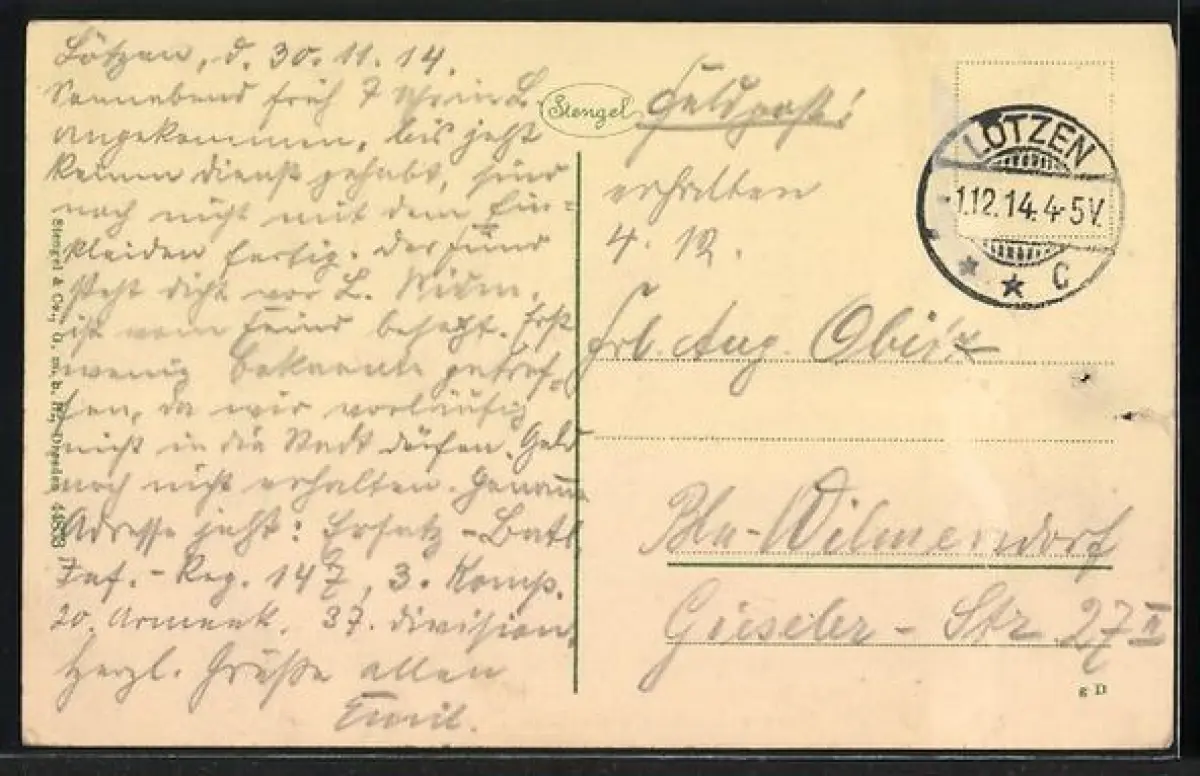 Lötzen, d. 30.11.14.
Sonnabend früh 7 Uhr in L.
angekommen, bis jetzt
keinen Dienst gehabt, sind
noch nicht mit dem Ein=
kleiden fertig. Der Feind
steht dicht vor L.
ist vom Feind besetzt. Erst
wenig Bekannte getrof=
fen, da wir vorläufig
nicht in die Stadt dürfen. Geld
noch nicht erhalten. Genaue
Adresse jetzt: Ersatz-Batl.
Inf.-Reg. 147, 3. Komp.
20. Armeek. 37. Division.
Herzl. Grüße allen
Emil.
Stengel & Co., G. m. b. H., Dresden 44833
Stengel
Feldpost!
erhalten
4. 12.
LÖTZEN
-1.12.14.4-5V.
* * C
Frl. Aug.
Bln-Wilmersdorf
Gieseler-Str 27 II
g D